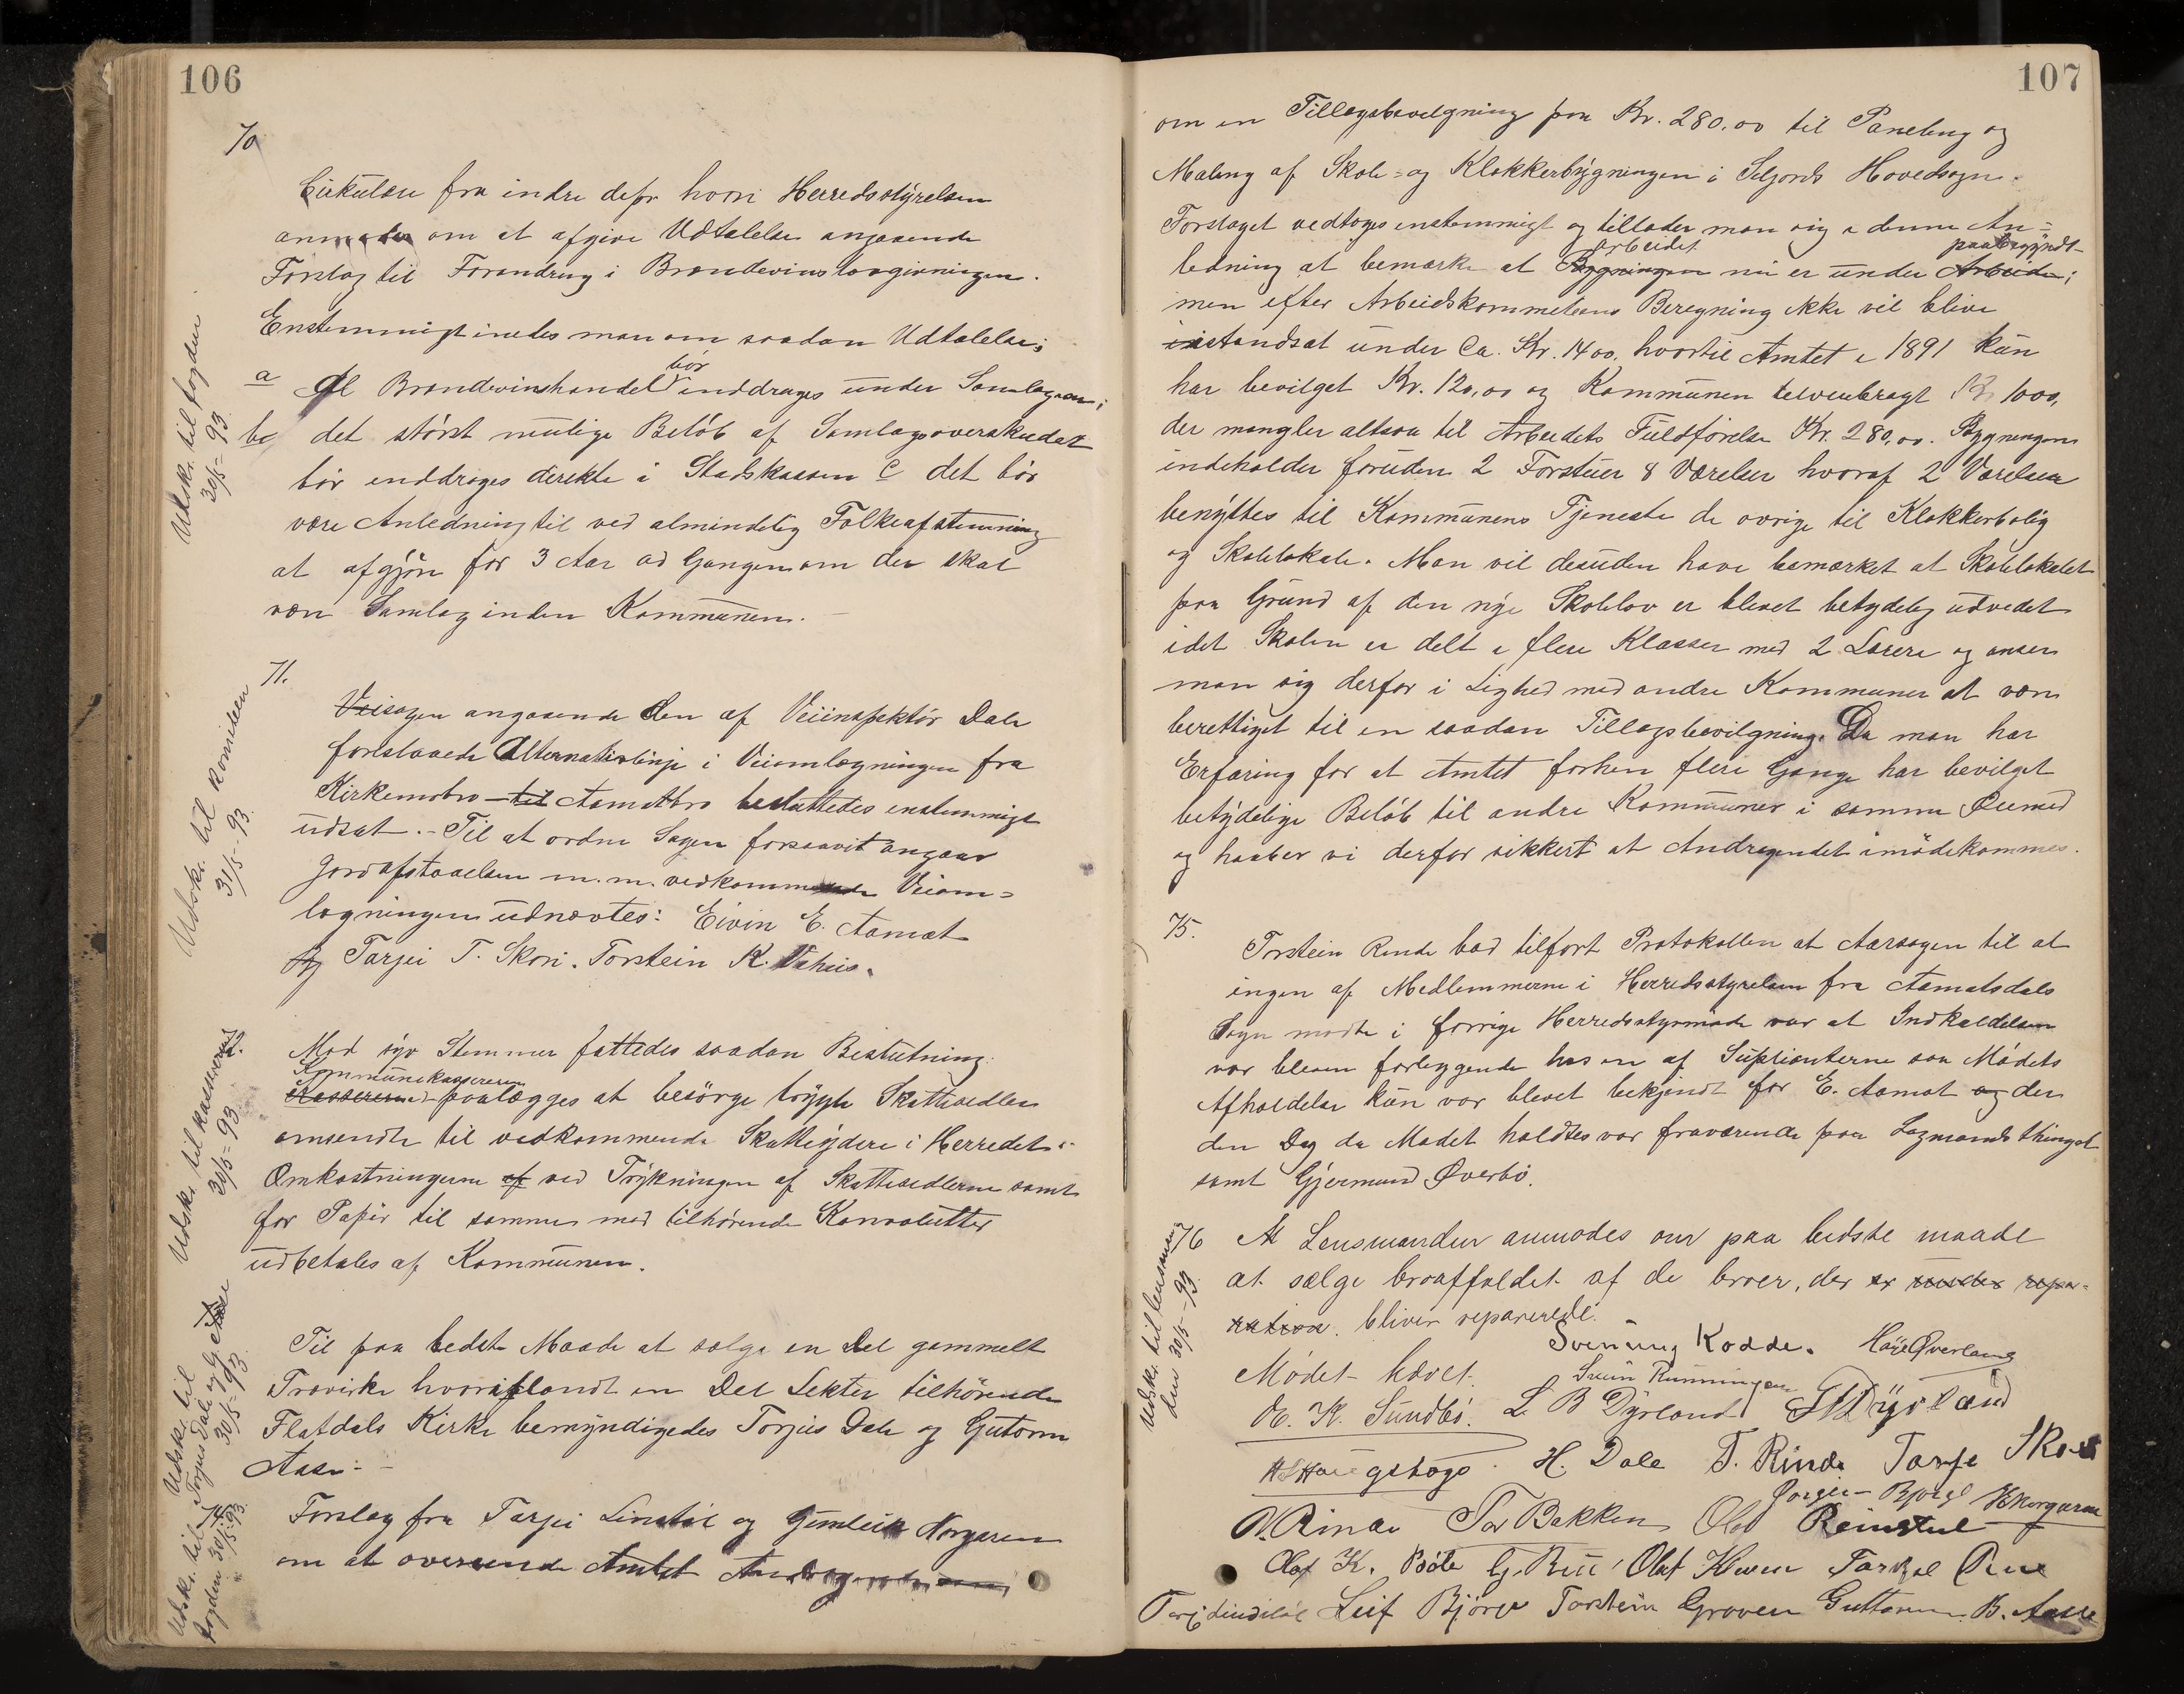 106
70
Cirkulære fra indre depr hvori Herredsstyrelsen
anmodes om at afgive Udtalelse angaaende
Forslag til Forandring i Brændevinslovgivningen.
Enstemmigt enedes man om saadan Udtalelse;
a Al Brændevinshandel bör inddrages under Samlagene;
b det störst mulige Belöb af Samlagsoverskudet
bör inddrages direkte i Stadskassen c det bör
være Anledning til ved almindelig Folkeafstemning
at afgjöre for 3 Aar ad Gangen om der skal
være Samlag inden Kommunen.
Udskr. til fogden
30/5-93.
71.
Veisagen angaaende den af Veiinspektör Dale
foreslaaede Alternativlinje i Veiomlægningen fra
Kirkemobro til Aamotbro besluttedes enstemmigt
udsat. - Til at ordne Sagen forsaavit angaar
Jordafstaaelsen m.m. vedkommende Veiom=
lægningen udnævntes: Eivin E. Aamot
og Tarjei T. Skori. Torstein K. Vehus.
Udskr. til komiteen
31/5-93.
72.
Med syv Stemmer fattedes saadan Beslutning:
Kommunekassereren
Kassereren paalægges at besörge trygte Skattesedler
omsendte til vedkommende Skatteydere i Herredet.
Omkostningerne af ved Trykningen af Skattesedlerne samt
for Papir til samme med tilhörende Konvolutter
udbetales af Kommunen.
Udskr. til kassereren
30/5-93.
Til paa bedste Maade at sælge en Del gammelt
Trævirke hvoriblandt en Del Sekter tilhörende
Flatdals Kirke bemyndigedes Torjus Dale og Gutorm
Aase.
Udskr. til
Torjus Dale og G. Aase
30/5-93.
Forslag fra Tarjei Lindstöl og Gunleik Norgaren
om at oversende Amtet Andragende om
Udskr. til
fogden 30/5-93.
107
om en Tillægsbevilgning paa Kr. 280.00 til Paneling og
Maling af Skole- og Klokkerbygningen i Seljords Hovedsogn.
Forslaget vedtoges enstemmigt og tillader man sig i denne An=
arbeidet paabegyndt
ledning at bemærke at Bygningen nu er under Arbeide;
men efter Arbeidskommiteens Beregning ikke vil blive
istandsat under Ca. Kr. 1400. hvortil Amtet i 1891 kun
har bevilget Kr. 120,00 og Kommunen tilveiebragt Kr 1000,
der mangler altsaa til Arbeidets Fuldförelse Kr. 280,00. Bygningen
indeholder foruden 2 Forstuer 8 Værelser hvoraf 2 Værelser
benyttes til Kommunens Tjeneste de övrige til Klokkerbolig
og Skolelokale. Man vil desuden have bemærket at Skolelokalet
paa Grund af den nye Skolelov er blevet betydelig udvidet
idet Skolen er delt i flere Klasser med 2 Lærere og anser
man sig derfor i Lighed med andre Kommuner at være
berettiget til en saadan Tillægsbevilgning. Da man har
Erfaring for at Amtet forhen flere Gange har bevilget
betydelige Belöb til andre Kommuner i samme Öiemed
og haaber vi derfor sikkert at Andragendet imödekommes.
75.
Torstein Rinde bad tilfört Protokollen at Aarsagen til at
ingen af Medlemmerne i Herredsstyrelsen fra Aamotsdals
Sogn mödte i forrige Herredsstyrmöde var at Indkaldelsen
var bleven forliggende hos en af Suplianterne saa Mödets
Afholdelse kun var blevet bekjendt for E. Aamot og der
den Dag da Mödet holdtes var fraværende paa Lagmandsthinget
samt Gjermund Överbö.
76 At Lensmanden anmodes om paa bedste maade
at sælge broaffaldet af de broer, der er under repar=
ration. bliver reparerede.
Udskr. til lensmand
den 30/5-93.
Mödet hævet.
Svenung Kodde. Haie Øverland
Svein Runningen
O. K. Sundbö. L. B Dyrland
H. Dale T. Rinde Tarje Skori
Tor Bakken Olav Reinstul
Olaf K. Böte Torkel
Leif Björge Torstein Groven Guttorm B. Aase